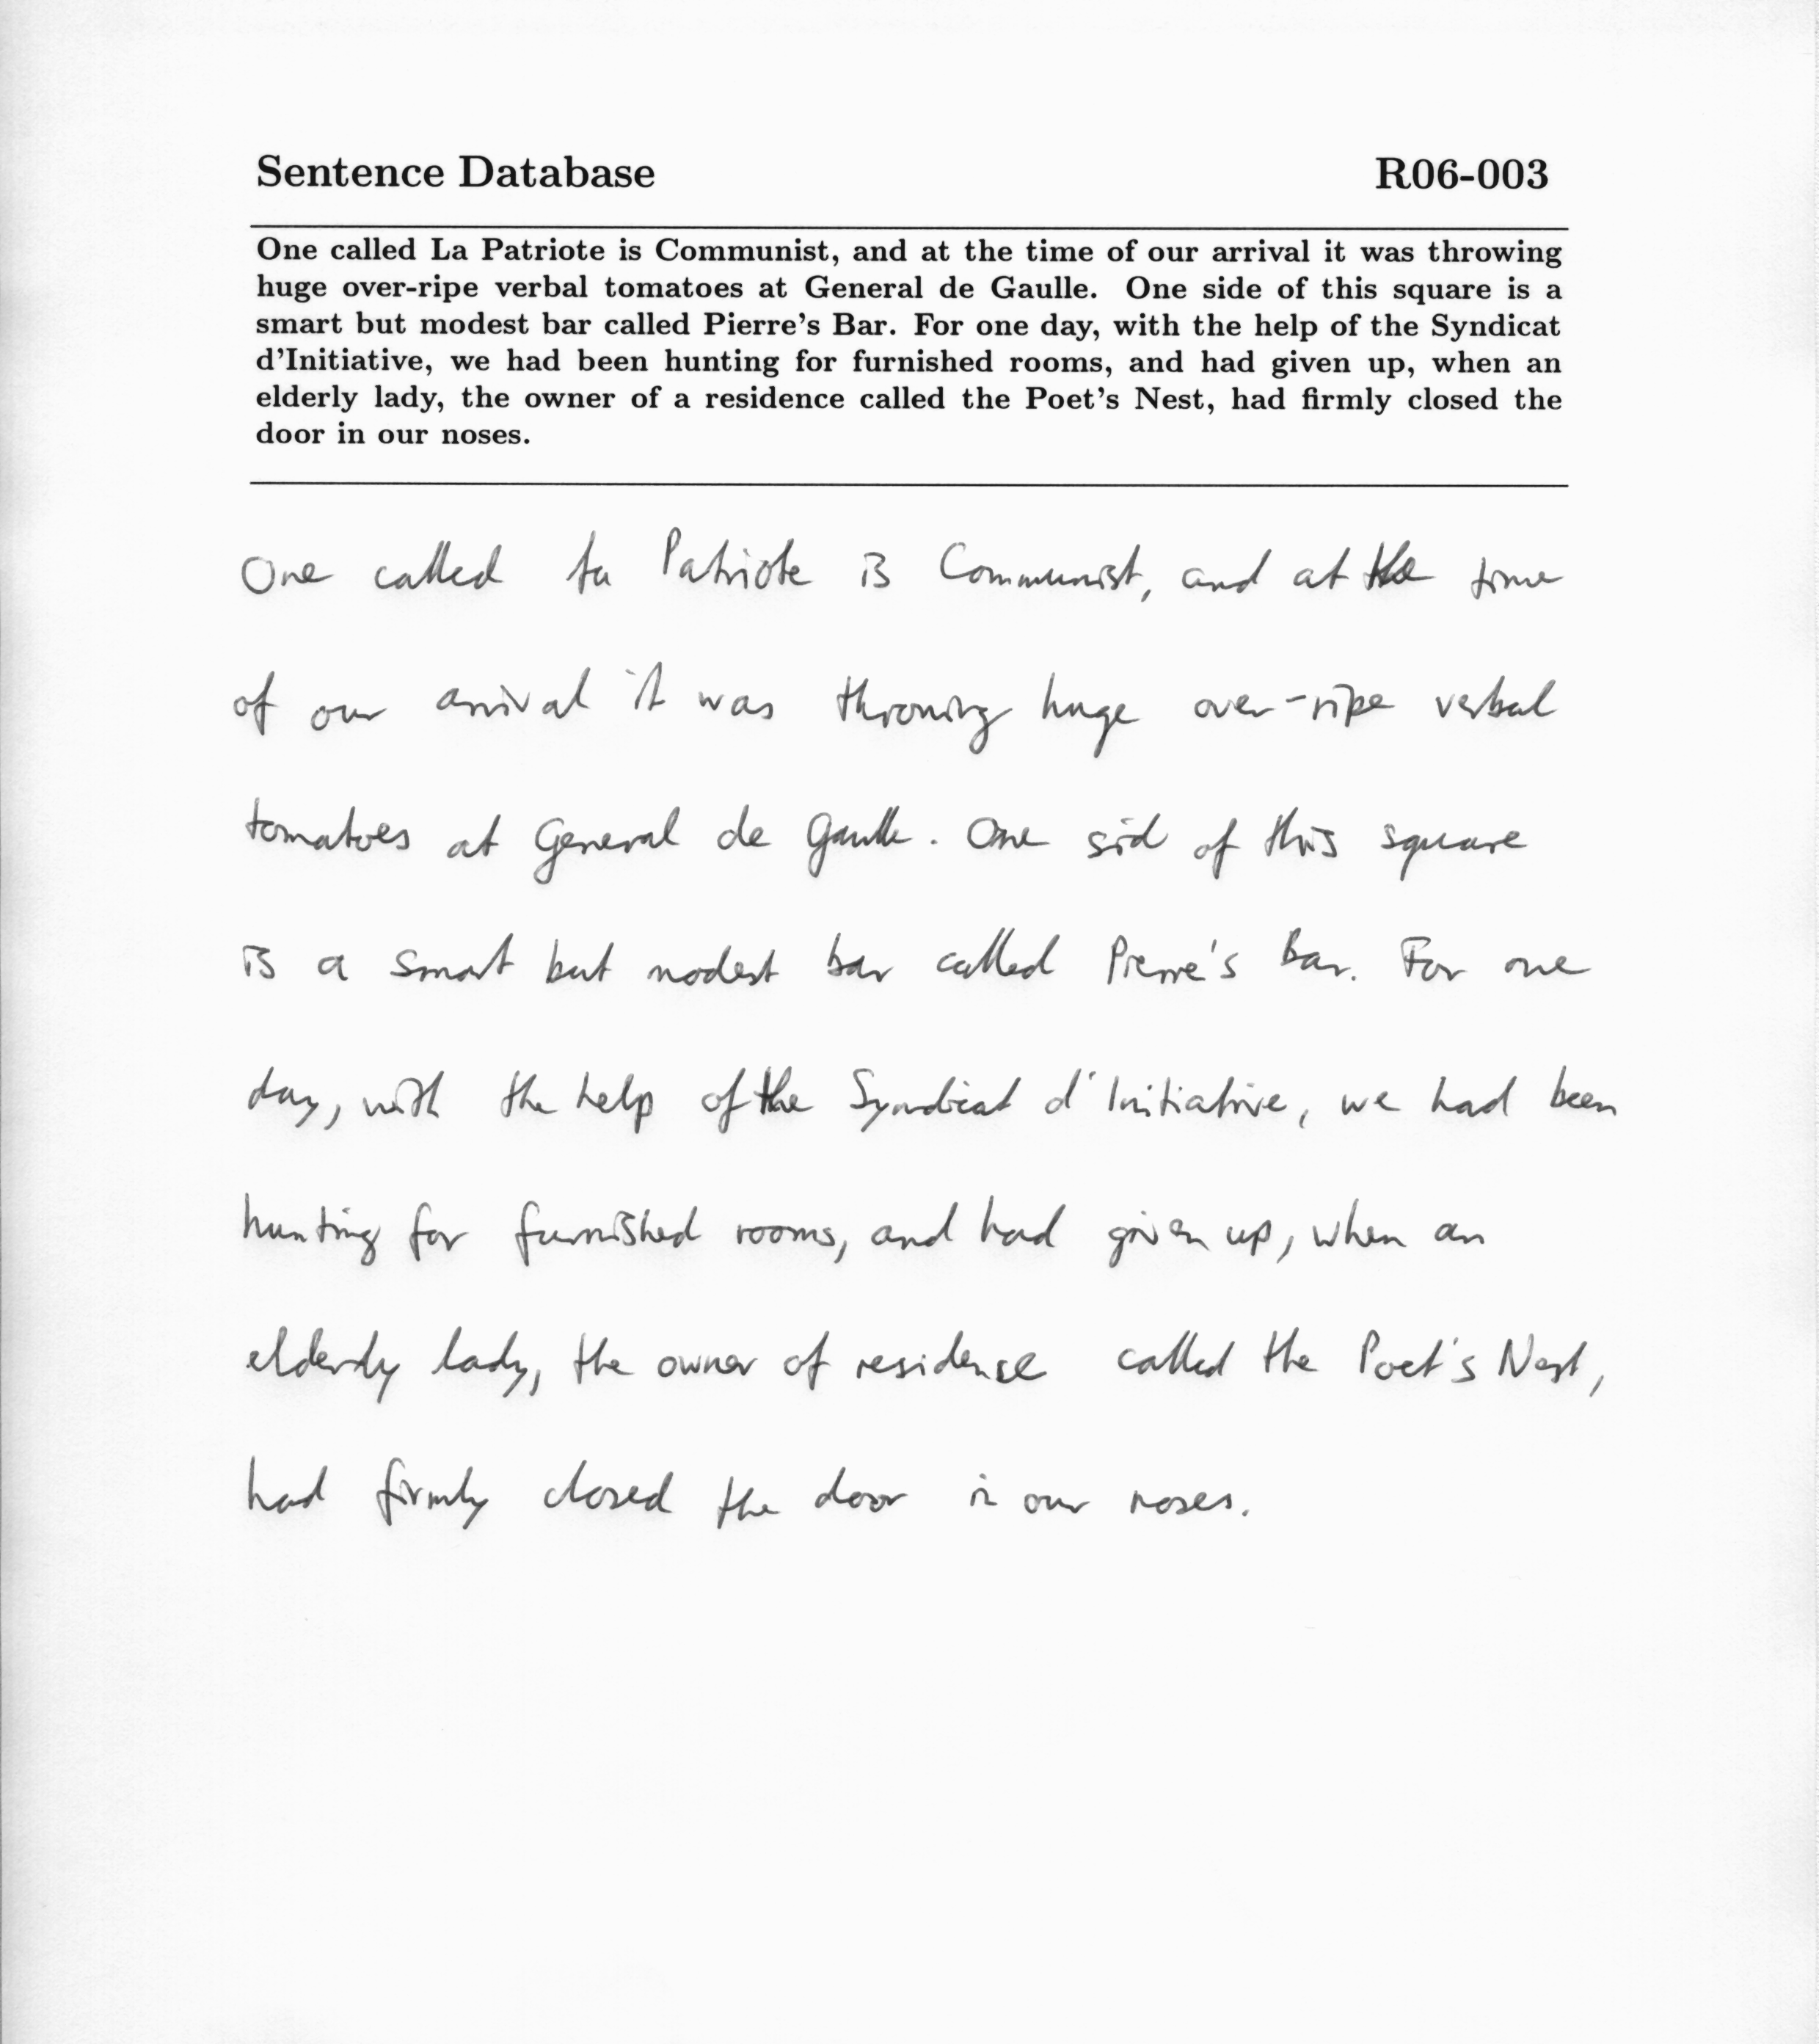 Sentence Database R06-003
One called La Patriote is Communist, and at the time of our arrival it was throwing
huge over-ripe verbal tomatoes at General de Gaulle. One side of this square is a
smart but modest bar called Pierre's Bar. For one day, with the help of the Syndicat
d'Initiative, we had been hunting for furnished rooms, and had given up, when an
elderly lady, the owner of a residence called the Poet's Nest, had firmly closed the
door in our noses.
One called ta Patriote is Communist, and at the time
of our arrival it was throwing huge over-ripe verbal
tomatoes at General de Gaulle. One sid of this square
is a smart but modest bar called Pierre's Bar. For one
day, with the help of the Syndicat d'Initiative, we had been
hunting for furnished rooms, and had given up, when an
elderly lady, the owner of residence called the Poet's Nest,
had firmly closed the door in our noses.